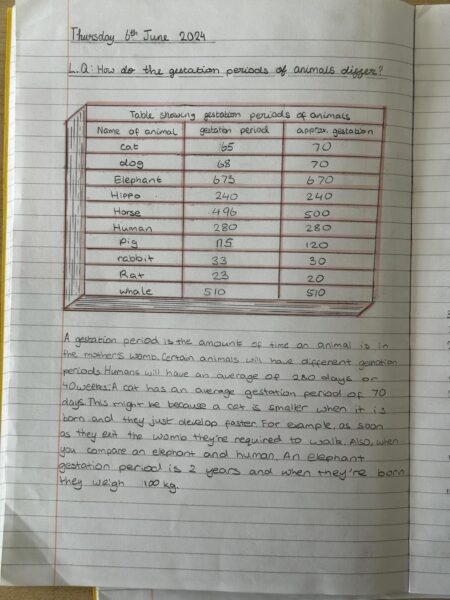 Thursday 6th June 2024
L.Q: How do the gestation periods of animals differ?
Table showing gestation periods of animals
Name of animal gestation period approx. gestation
cat 65 70
dog 68 70
Elephant 673 670
Hippo 240 240
Horse 496 500
Human 280 280
Pig 115 120
rabbit 33 30
Rat 23 20
whale 510 510
A gestation period is the amount of time an animal is in
the mother's womb. Certain animals will have different gestation
periods. Humans will have an average of 280 days or
40 weeks. A cat has an average gestation period of 70
days. This might be because a cat is smaller when it is
born and they just develop faster. For example, as soon
as they exit the womb they're required to walk. Also, when
you compare an elephant and human, An elephant
gestation period is 2 years and when they're born
they weigh 100kg.